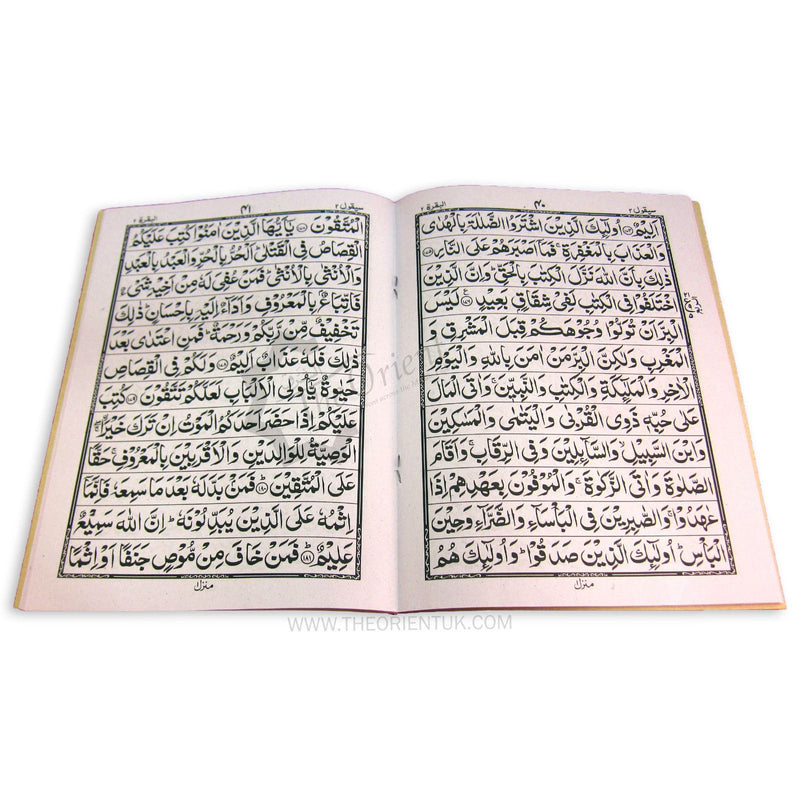 البقرة ٢
٤٠
سيقول ٢
اَلِيْمٌ ﴿١٧٤﴾ اُولٰٓئِكَ الَّذِيْنَ اشْتَرَوُا الضَّلٰلَةَ بِالْهُدٰى
وَالْعَذَابَ بِالْمَغْفِرَةِ ۚ فَمَآ اَصْبَرَهُمْ عَلَى النَّارِ ﴿١٧٥﴾
ذٰلِكَ بِاَنَّ اللّٰهَ نَزَّلَ الْكِتٰبَ بِالْحَقِّ ؕ وَاِنَّ الَّذِيْنَ
اخْتَلَفُوْا فِى الْكِتٰبِ لَفِىْ شِقَاقٍۢ بَعِيْدٍ ﴿١٧٦﴾ لَيْسَ
الْبِرَّ اَنْ تُوَلُّوْا وُجُوْهَكُمْ قِبَلَ الْمَشْرِقِ وَ
الْمَغْرِبِ وَلٰكِنَّ الْبِرَّ مَنْ اٰمَنَ بِاللّٰهِ وَالْيَوْمِ
الْاٰخِرِ وَالْمَلٰٓئِكَةِ وَالْكِتٰبِ وَالنَّبِيّٖنَ ۚ وَاٰتَى الْمَالَ
عَلٰى حُبِّهٖ ذَوِى الْقُرْبٰى وَالْيَتٰمٰى وَالْمَسٰكِيْنَ
وَابْنَ السَّبِيْلِ ۙ وَالسَّآئِلِيْنَ وَفِى الرِّقَابِ ۚ وَاَقَامَ
الصَّلٰوةَ وَاٰتَى الزَّكٰوةَ ۚ وَالْمُوْفُوْنَ بِعَهْدِهِمْ اِذَا
عٰهَدُوْا ۚ وَالصّٰبِرِيْنَ فِى الْبَاْسَآءِ وَالضَّرَّآءِ وَحِيْنَ
الْبَاْسِ ؕ اُولٰٓئِكَ الَّذِيْنَ صَدَقُوْا ؕ وَاُولٰٓئِكَ هُمُ
منزل ١
البقرة ٢
٤١
سيقول ٢
الْمُتَّقُوْنَ ﴿١٧٧﴾ يٰٓاَيُّهَا الَّذِيْنَ اٰمَنُوْا كُتِبَ عَلَيْكُمُ
الْقِصَاصُ فِى الْقَتْلٰى ؕ اَلْحُرُّ بِالْحُرِّ وَالْعَبْدُ بِالْعَبْدِ
وَالْاُنْثٰى بِالْاُنْثٰى ؕ فَمَنْ عُفِىَ لَهٗ مِنْ اَخِيْهِ شَىْءٌ
فَاتِّبَاعٌۢ بِالْمَعْرُوْفِ وَاَدَآءٌ اِلَيْهِ بِاِحْسَانٍ ؕ ذٰلِكَ
تَخْفِيْفٌ مِّنْ رَّبِّكُمْ وَرَحْمَةٌ ؕ فَمَنِ اعْتَدٰى بَعْدَ
ذٰلِكَ فَلَهٗ عَذَابٌ اَلِيْمٌ ﴿١٧٨﴾ وَلَكُمْ فِى الْقِصَاصِ
حَيٰوةٌ يّٰٓاُولِى الْاَلْبَابِ لَعَلَّكُمْ تَتَّقُوْنَ ﴿١٧٩﴾ كُتِبَ
عَلَيْكُمْ اِذَا حَضَرَ اَحَدَكُمُ الْمَوْتُ اِنْ تَرَكَ خَيْرَا ۖۚ
اۨلْوَصِيَّةُ لِلْوَالِدَيْنِ وَالْاَقْرَبِيْنَ بِالْمَعْرُوْفِ ۚ حَقًّا
عَلَى الْمُتَّقِيْنَ ﴿١٨٠﴾ فَمَنْۢ بَدَّلَهٗ بَعْدَ مَا سَمِعَهٗ فَاِنَّمَآ
اِثْمُهٗ عَلَى الَّذِيْنَ يُبَدِّلُوْنَهٗ ؕ اِنَّ اللّٰهَ سَمِيْعٌ
عَلِيْمٌ ﴿١٨١﴾ فَمَنْ خَافَ مِنْ مُّوْصٍ جَنَفًا اَوْ اِثْمًا
منزل ١
WWW.THEORIENTUK.COM